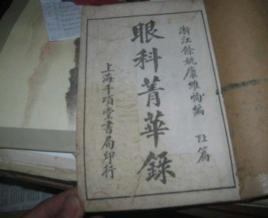 浙江餘姚康維恂編
眼科菁華錄
上海千頃堂書局印行